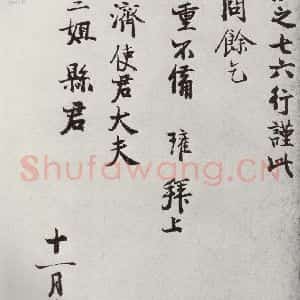 之七六行謹此
餘乞
重不備 雍拜上
濟使君大夫
姐縣君
十一月
Shufawang.CN